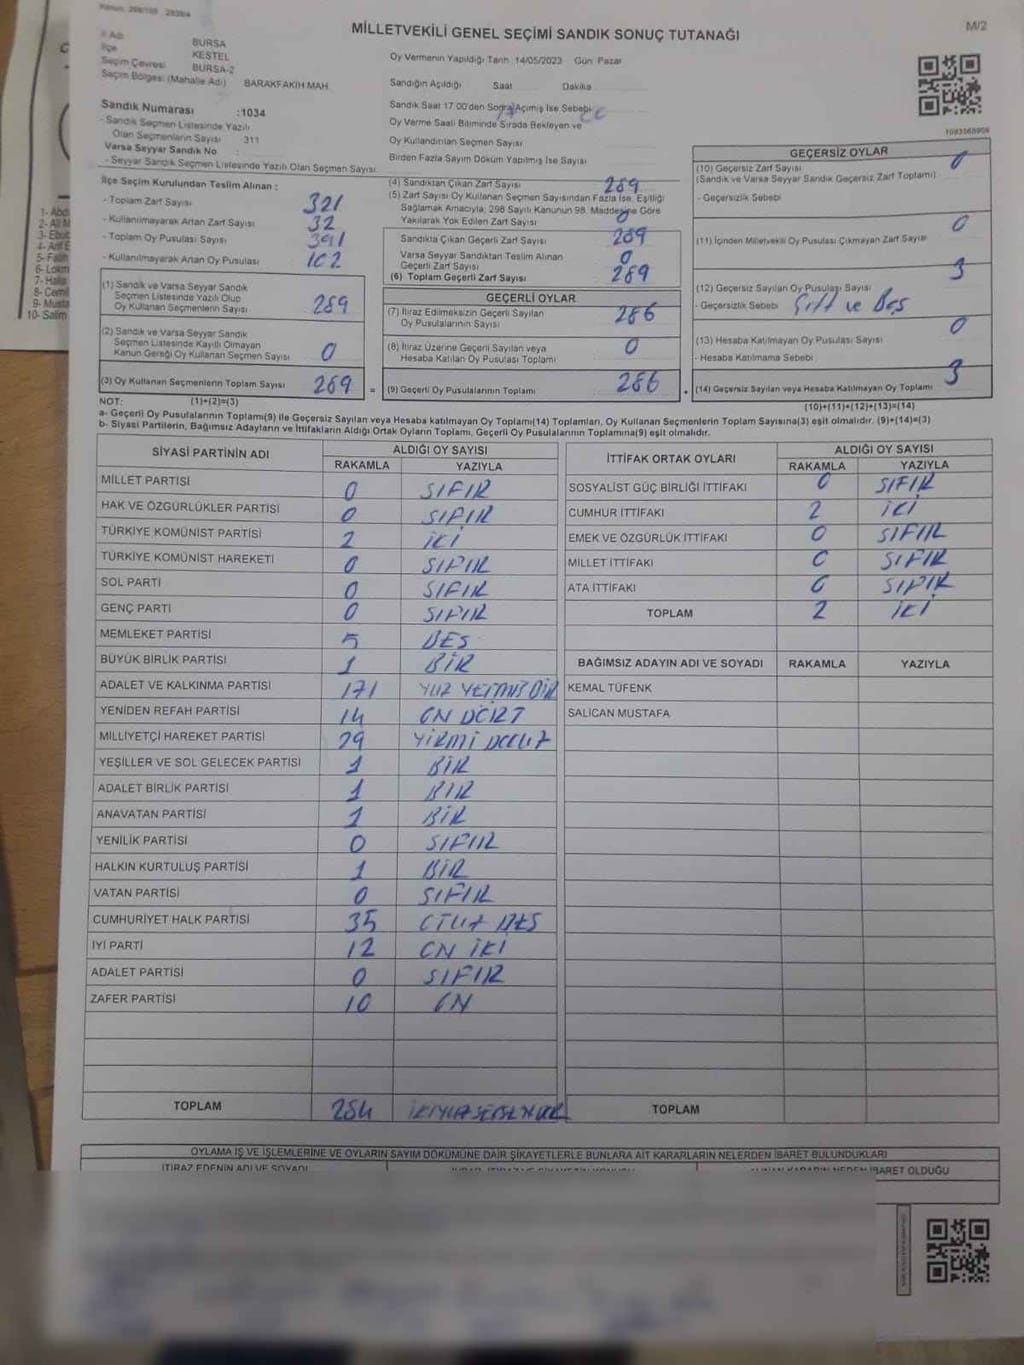 MİLLETVEKİLİ GENEL SEÇİMİ SANDIK SONUÇ TUTANAĞI
M/2
İl Adı BURSA
İlçe KESTEL
Seçim Çevresi BURSA-2
Seçim Bölgesi (Mahalle Adı) BARAKFAKİH MAH.
Oy Vermenin Yapıldığı Tarih :14/05/2023 Gün: Pazar
Sandığın Açıldığı Saat Dakika
Sandık Saat 17.00'den Sonra Açımış İse Sebebi
Oy Verme Saati Bitiminde Sırada Bekleyen ve
Oy Kullandırılan Seçmen Sayısı
Birden Fazla Sayım Döküm Yapılmış İse Sayısı
Sandık Numarası :1034
- Sandık Seçmen Listesinde Yazılı
Olan Seçmenlerin Sayısı 311
Varsa Seyyar Sandık No :
- Seyyar Sandık Seçmen Listesinde Yazılı Olan Seçmen Sayısı
İlçe Seçim Kurulundan Teslim Alınan :
- Toplam Zarf Sayısı 321
- Kullanılmayarak Artan Zarf Sayısı 32
- Toplam Oy Pusulası Sayısı 391
- Kullanılmayarak Artan Oy Pusulası 102
(1) Sandık ve Varsa Seyyar Sandık
Seçmen Listesinde Yazılı Olup
Oy Kullanan Seçmenlerin Sayısı 289
(2) Sandık ve Varsa Seyyar Sandık
Seçmen Listesinde Kayıtlı Olmayan
Kanun Gereği Oy Kullanan Seçmen Sayısı 0
(3) Oy Kullanan Seçmenlerin Toplam Sayısı 289 =
(4) Sandıktan Çıkan Zarf Sayısı 289
(5) Zarf Sayısı Oy Kullanan Seçmen Sayısından Fazla İse, Eşitliği
Sağlamak Amacıyla; 298 Sayılı Kanunun 98. Maddesine Göre
Yakılarak Yok Edilen Zarf Sayısı 0
Sandıkta Çıkan Geçerli Zarf Sayısı 289
Varsa Seyyar Sandıktan Teslim Alınan
Geçerli Zarf Sayısı 0
(6) Toplam Geçerli Zarf Sayısı 289
GEÇERLİ OYLAR
(7) İtiraz Edilmeksizin Geçerli Sayılan
Oy Pusulalarının Sayısı 286
(8) İtiraz Üzerine Geçerli Sayılan veya
Hesaba Katılan Oy Pusulası Toplamı 0
(9) Geçerli Oy Pusulalarının Toplamı 286 +
1093568909
GEÇERSİZ OYLAR
(10) Geçersiz Zarf Sayısı 0
(Sandık ve Varsa Seyyar Sandık Geçersiz Zarf Toplamı)
- Geçersizlik Sebebi
(11) İçinden Milletvekili Oy Pusulası Çıkmayan Zarf Sayısı 0
(12) Geçersiz Sayılan Oy Pusulası Sayısı 3
- Geçersizlik Sebebi Çift ve Boş
(13) Hesaba Katılmayan Oy Pusulası Sayısı 0
- Hesaba Katılmama Sebebi
(14) Geçersiz Sayılan veya Hesaba Katılmayan Oy Toplamı 3
NOT: (1)+(2)=(3)
(10)+(11)+(12)+(13)=(14)
a- Geçerli Oy Pusulalarının Toplamı(9) ile Geçersiz Sayılan veya Hesaba katılmayan Oy Toplamı(14) Toplamları, Oy Kullanan Seçmenlerin Toplam Sayısına(3) eşit olmalıdır. (9)+(14)=(3)
b- Siyasi Partilerin, Bağımsız Adayların ve İttifakların Aldığı Ortak Oyların Toplamı, Geçerli Oy Pusulalarının Toplamına(9) eşit olmalıdır.
SİYASİ PARTİNİN ADI ALDIĞI OY SAYISI
RAKAMLA YAZIYLA
MİLLET PARTİSİ 0 SIFIR
HAK VE ÖZGÜRLÜKLER PARTİSİ 0 SIFIR
TÜRKİYE KOMÜNİST PARTİSİ 2 İKİ
TÜRKİYE KOMÜNİST HAREKETİ 0 SIFIR
SOL PARTİ 0 SIFIR
GENÇ PARTİ 0 SIFIR
MEMLEKET PARTİSİ 5 BEŞ
BÜYÜK BİRLİK PARTİSİ 1 BİR
ADALET VE KALKINMA PARTİSİ 171 YÜZ YETMİŞ BİR
YENİDEN REFAH PARTİSİ 14 ON DÖRT
MİLLİYETÇİ HAREKET PARTİSİ 29 YİRMİ DOKUZ
YEŞİLLER VE SOL GELECEK PARTİSİ 1 BİR
ADALET BİRLİK PARTİSİ 1 BİR
ANAVATAN PARTİSİ 1 BİR
YENİLİK PARTİSİ 0 SIFIR
HALKIN KURTULUŞ PARTİSİ 1 BİR
VATAN PARTİSİ 0 SIFIR
CUMHURİYET HALK PARTİSİ 35 OTUZ BEŞ
İYİ PARTİ 12 ON İKİ
ADALET PARTİSİ 0 SIFIR
ZAFER PARTİSİ 10 ON
TOPLAM 284
İTTİFAK ORTAK OYLARI ALDIĞI OY SAYISI
RAKAMLA YAZIYLA
SOSYALİST GÜÇ BİRLİĞİ İTTİFAKI 0 SIFIR
CUMHUR İTTİFAKI 2 İKİ
EMEK VE ÖZGÜRLÜK İTTİFAKI 0 SIFIR
MİLLET İTTİFAKI 0 SIFIR
ATA İTTİFAKI 0 SIFIR
TOPLAM 2 İKİ
BAĞIMSIZ ADAYIN ADI VE SOYADI RAKAMLA YAZIYLA
KEMAL TÜFENK
SALİCAN MUSTAFA
TOPLAM
OYLAMA İŞ VE İŞLEMLERİNE VE OYLARIN SAYIM DÖKÜMÜNE DAİR ŞİKAYETLERLE BUNLARA AİT KARARLARIN NELERDEN İBARET BULUNDUKLARI
İTİRAZ EDENİN ADI VE SOYADI